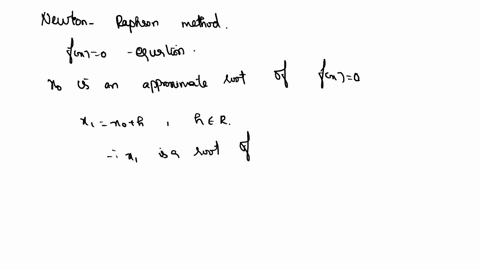 Newton- Raphson method.
f(x)=0 - equation.
x₀ is an approximate root of f(x)=0
x₁ = x₀+h , h ∈ R.
∴ x₁ is a root of